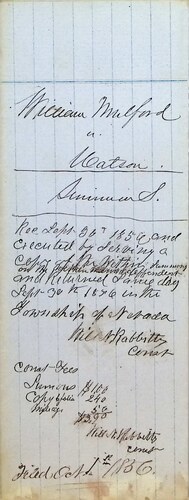 William Mulford
v.
Watson
Summons S.
Rec Sept. 30th 1856, and
executed by serving a
copy of the within Summons
on the within named defendent
and returned same day
Sept. 30th 1856 in the
Township of Nevada
Will A Rabbitts
Const
Const. Fees
Sumons $1.00
Copy 240
Mileage 50
Will A Rabbitts
Const
Filed Oct. 1st 1856.